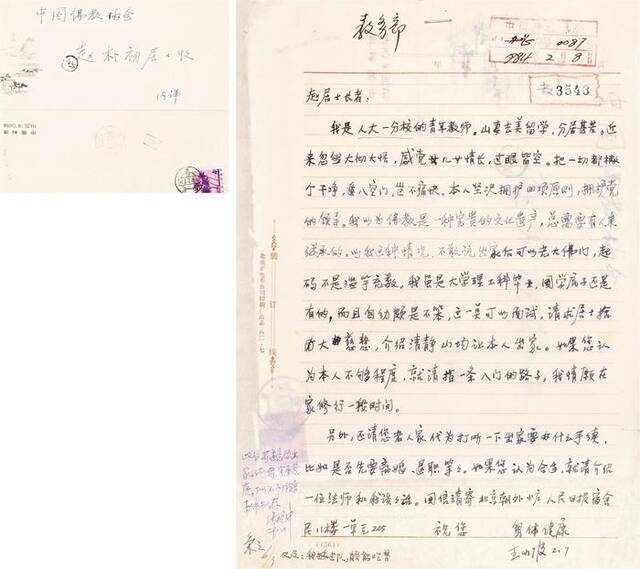 中国佛教协会
赵朴初居士收
内详
教务部
0087
1984 2月8
3543
赵居士长者:
我是人大一分校的青年教师。山妻去美留学,分居甚苦。近
来忽然大彻大悟,感觉女儿女情长,过眼皆空。把一切都撇
个干净,遁入空门,岂不痛快。本人坚决拥护四项原则,拥护党
的领导。我以为佛教是一种宝贵的文化遗产,总需要有人来
继承的。以我这种情况,不敢说出家后可以光大佛门,起
码不是滥竽充数,我虽是大学理工科毕业,国学底子还是
有的,而且自幼颇是不笨,这一莫可以面试,请求居士
大慈悲,介绍清静山场让本人出家。如果您认
为本人不够程度,就请指一条入门的路子,我情愿在
家修行一段时间。
另外,还请您老人家代为打听一下出家要办什么手续,
比如是否先要离婚、退职等等。如果您认为合适,就请介绍
一位法师和我谈谈。回信请寄北京朝外小庄人民日报宿舍
民八楼一单元205
祝您 身体健康
王小波 2.7
又及:我插过队,能吃苦
装订线
(1561)